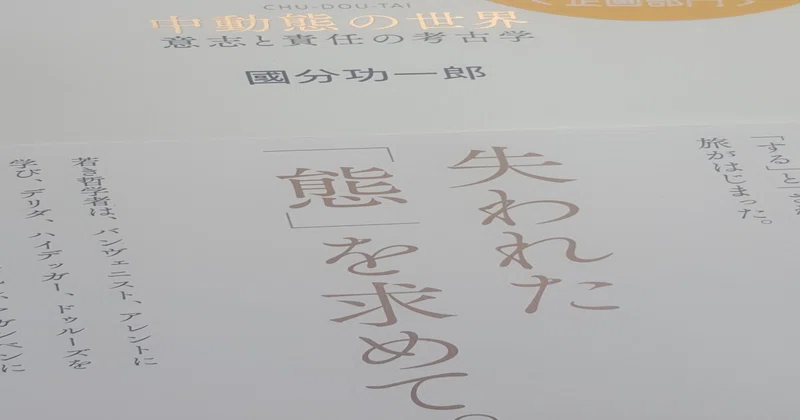 CHU-DOU-TAI
中動態の世界
意志と責任の考古学
國分功一郎
企画部門
「する」と
旅がはじまった。
失われた
「態」を求めて。
若き哲学者は、バンヴェニスト、アレントに
学び、デリダ、ハイデッガー、ドゥルーズを